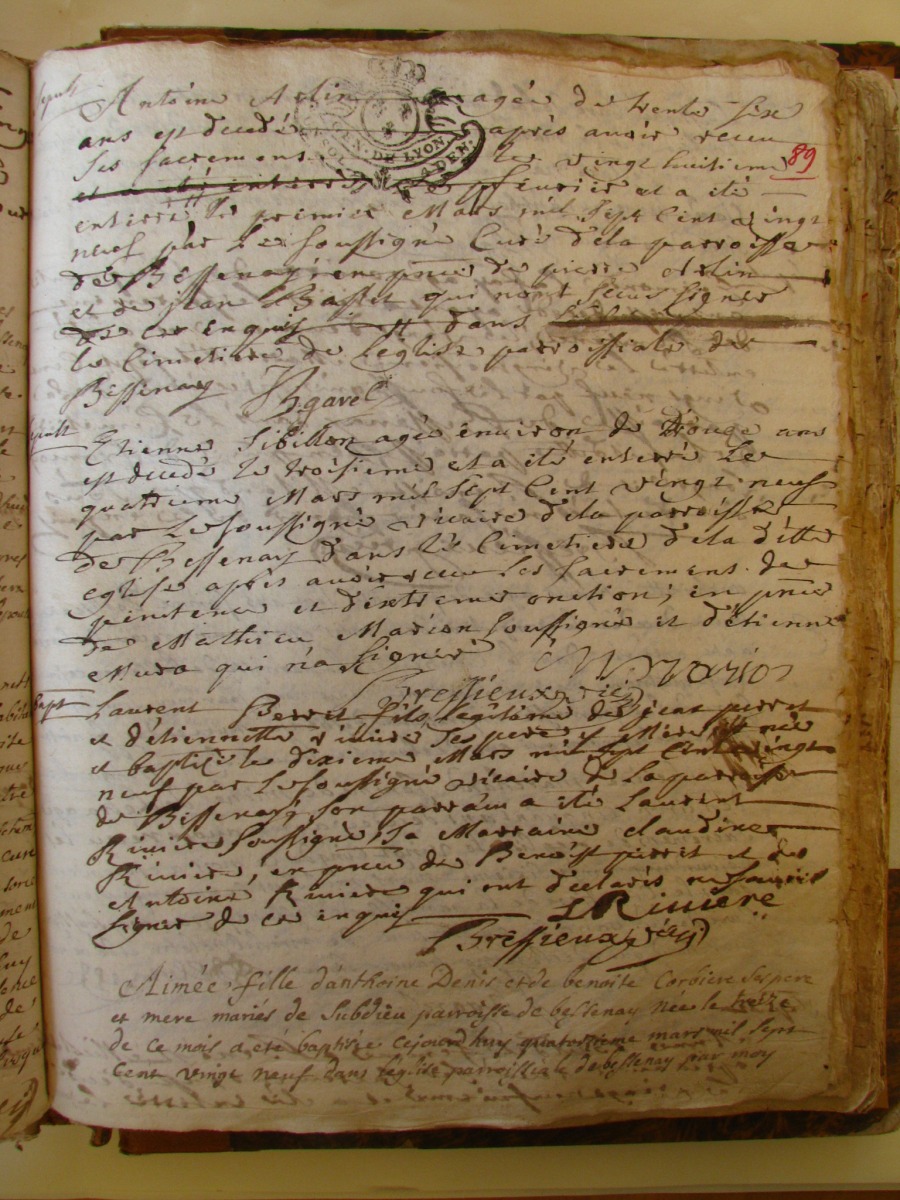 sepult
Antoine Aclin agée de trente six
ans est decedé apres avoir receu
GEN. DE LYON
Ses sacrements le vingt huitieme
89
et a été enterré fevrier et a été
enterré le premier Mars mil sept cent vingt
neuf par le soussigné Curé de la parroisse
de Bessenay en pnce de pierre Aclin
et de jean Basset qui n'ont sceus signer
de ce Enquis dans
le Cimetiere de l'eglise parroissiale de
Bessenay
sepult
Etienne Sibillon agée environ de Douze ans
est decedé le troisieme et a été enterré le
quatrieme Mars mil sept Cent vingt neuf
par le soussigné vicaire de la parroisse
de Bessenay dans le Cimetiere de la ditte
eglise apres avoir receu les sacrement de
penitence et d'extreme onction, en pnce
de Mathieu Marion soussigné et d'étienne
Mura qui n'a signer M Marion
Bressieux vic
Bapt
Laurent Perret fils legitime de jean perret
et d'étiennette riviere ses pere et Mere née
et baptizé le dixieme Mars mil sept Cent vingt
neuf par le soussigné vicaire de la parroisse
de Bessenay, son parrain a été Laurent
Riviere soussigné, sa Marraine claudine
Riviere, en pnce de Benoist perret et de
Antoine Riviere qui ont declarés ne scavoir
signer de ce enquis L Riviere
Bressieux vic
Aimée fille d'anthoine Denis et de benoite Corbiere ses pere
et mere mariés de Subdieu parroisse de bessenay Nee le treize
de ce mois a eté baptisée cejourd'huy quatorzieme mars mil sept
Cent vingt neuf dans l'eglise parroissiale de bessenay par moy